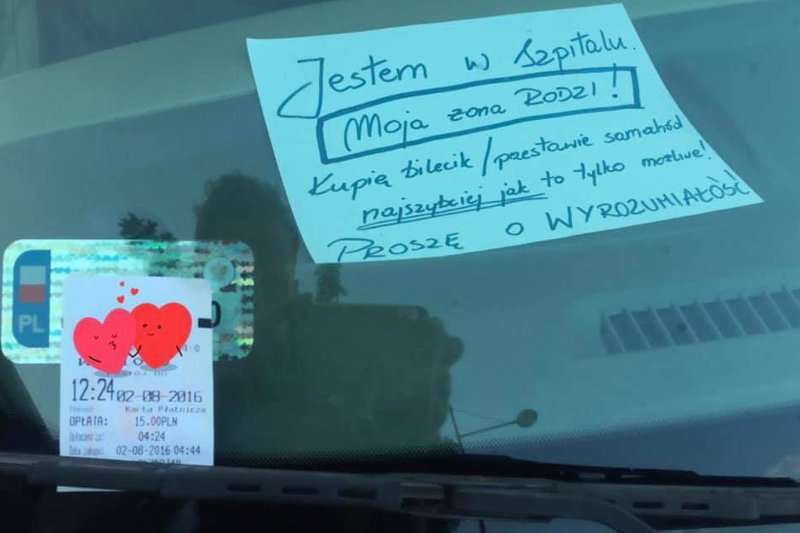 Jestem w szpitalu.
Moja żona RODZI!
Kupię bilecik/przestawię samochód
najszybciej jak to tylko możliwe!
PROSZĘ O WYROZUMIAŁOŚĆ
PL
12:24 02-08-2016
Karta Płatnicza
OPŁATA: 15.00PLN
04:24
02-08-2016 04:44